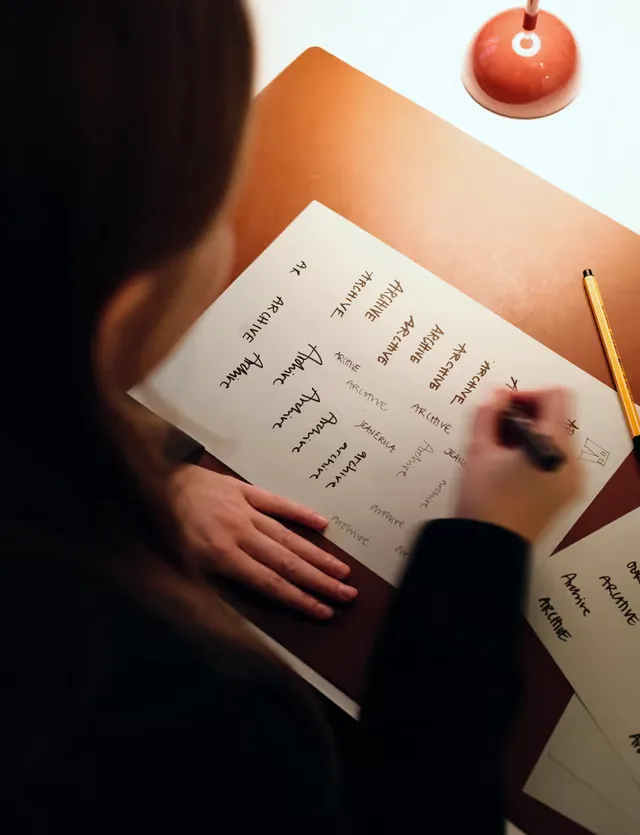 AR
ARCHIVE
Archive
ARCHIVE
ARCHIVE
Archive
Archive
Archive
archive
archive
ARCHIVE
ARCHIVE
ARCHIVE
ARCHIVE
ARCHIVE
ARCHIVE
ARCHIVE
ARCHIVE
JEANERICA
Archive
archive
archive
archive
Archive
ARCHIVE
ARCHIVE